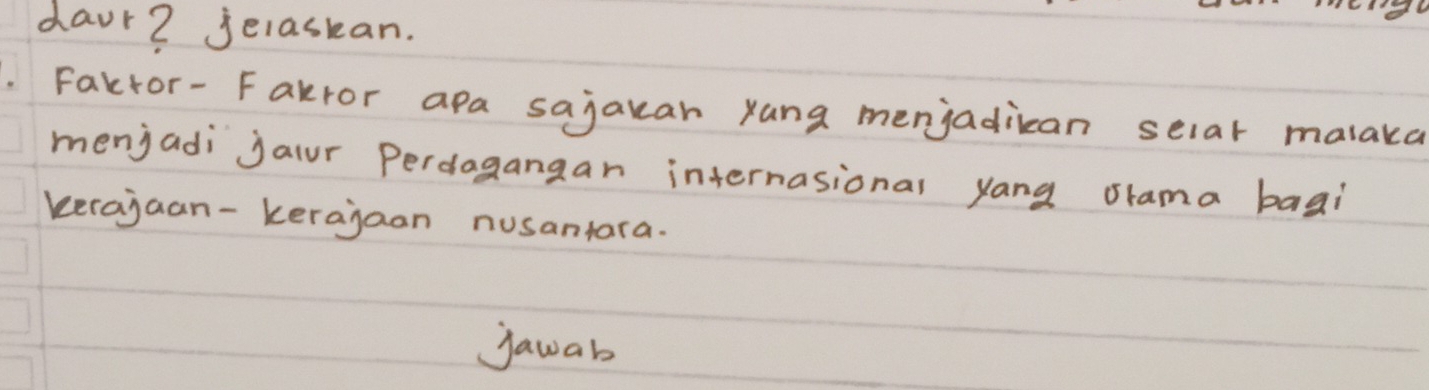 daur? jelaskan.
. Faktor-Faktor apa sajakah yang menjadikan selat malaka
menjadi jalur Perdagangan internasional yang utama bagi
kerajaan-kerajaan nusantara.
jawab